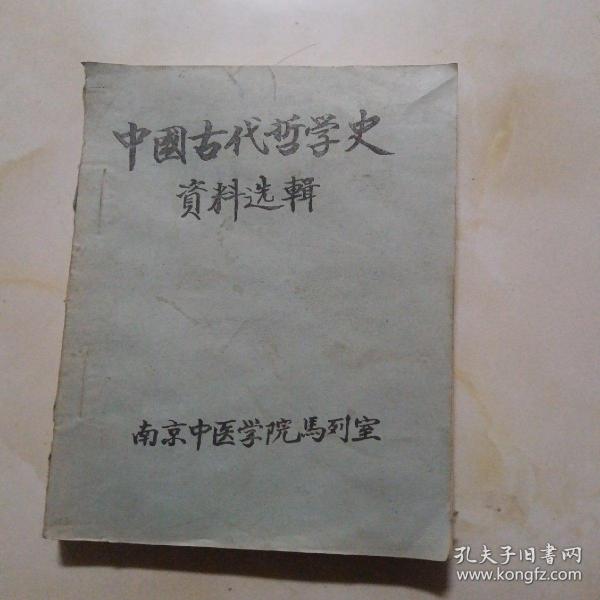 中國古代哲学史
資料选輯
南京中医学院馬列室
孔夫子旧书网
www.kongfz.com